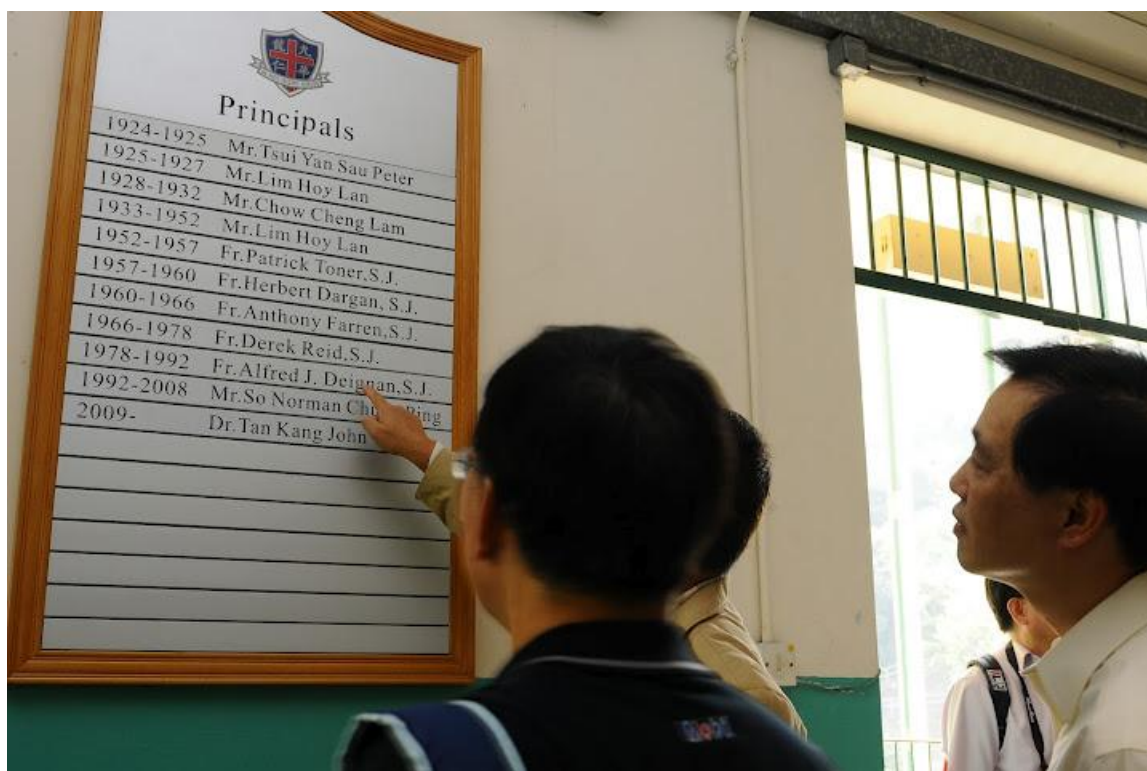 九龍
華仁
Principals
1924-1925 Mr.Tsui Yan Sau Peter
1925-1927 Mr.Lim Hoy Lan
1928-1932 Mr.Chow Cheng Lam
1933-1952 Mr.Lim Hoy Lan
1952-1957 Fr.Patrick Toner,S.J.
1957-1960 Fr.Herbert Dargan, S.J.
1960-1966 Fr.Anthony Farren,S.J.
1966-1978 Fr.Derek Reid,S.J.
1978-1992 Fr.Alfred J. Deignan,S.J.
1992-2008 Mr.So Norman
2009- Dr.Tan Kang John